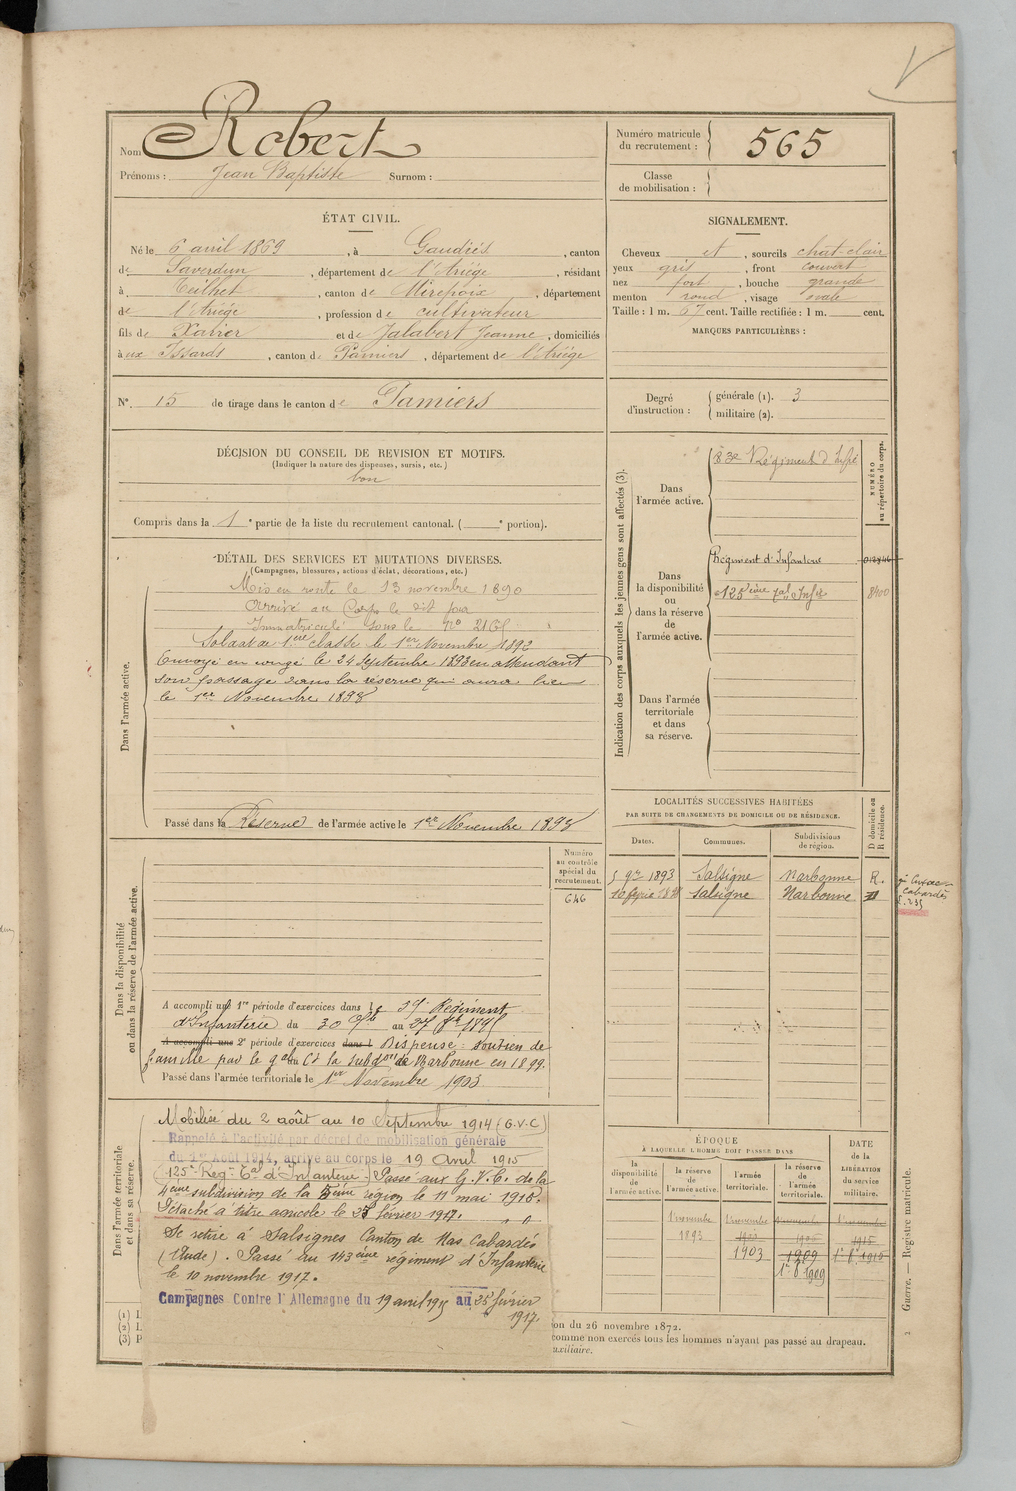 Nom Robert
Prénoms : Jean Baptiste Surnom :
Numéro matricule du recrutement : 565
Classe de mobilisation :
ÉTAT CIVIL.
Né le 6 avril 1869, à Gaudiés, canton
de Saverdun, département de l'Ariége, résidant
à Teilhet, canton de Mirepoix, département
de l'Ariége, profession de cultivateur
fils de Xavier et de Jalabert Jeanne, domiciliés
à ux Issards, canton de Pamiers, département de l'Ariége
SIGNALEMENT.
Cheveux et, sourcils chat-clair
yeux gris, front couvert
nez fort, bouche grande
menton rond, visage ovale
Taille : 1 m. 67 cent. Taille rectifiée : 1 m. cent.
MARQUES PARTICULIÈRES :
N° 15 de tirage dans le canton de Pamiers
Degré d'instruction : générale (1). 3
militaire (2).
DÉCISION DU CONSEIL DE REVISION ET MOTIFS.
(Indiquer la nature des dispenses, sursis, etc.)
bon
Compris dans la 1e partie de la liste du recrutement cantonal. ( e portion).
DÉTAIL DES SERVICES ET MUTATIONS DIVERSES.
(Campagnes, blessures, actions d'éclat, décorations, etc.)
Dans l'armée active.
Mis en route le 13 novembre 1890
Arrivé au Corps le dit jour
Immatriculé sous le n°
Soldat de 1ère classe le 1er Novembre 1892
Envoyé en congé le 24 Septembre 1893 en attendant
son passage dans la réserve qui aura lieu
le 1er Novembre 1893
Passé dans la Réserve de l'armée active le 1er Novembre 1893
Indication des corps auxquels les jeunes gens sont affectés (3).
NUMÉRO au répertoire du corps.
Dans l'armée active.
83e Régiment d'Infie
Dans la disponibilité ou dans la réserve de l'armée active.
Régiment d'Infanterie
125ème Infie 8400
Dans l'armée territoriale et dans sa réserve.
LOCALITÉS SUCCESSIVES HABITÉES
PAR SUITE DE CHANGEMENTS DE DOMICILE OU DE RÉSIDENCE.
D domicile ou R résidence.
Dates. Communes. Subdivisions de région.
5 9bre 1893 Salsigne Narbonne R.
Salsigne Narbonne D
Cabardès
Numéro au contrôle spécial du recrutement.
646
Dans la disponibilité ou dans la réserve de l'armée active.
A accompli une 1re période d'exercices dans le Régiment
d'Infanterie du 30 au 27
A accompli une 2e période d'exercices dans l Dispensé : soutien de
famille par le Gal Ct la Subdon de Narbonne en 1899.
Passé dans l'armée territoriale le 1er Novembre 1903
Dans l'armée territoriale et dans sa réserve.
Mobilisé du 2 août au 10 Septembre 1914 (G.V.C)
Rappelé à l'activité par décret de mobilisation générale
du 1er Août 1914, arrivé au corps le 19 Avril 1915
125e Reg-t Tal d'Infanterie Passé aux G.V.C. de la
4ème subdivision de la région le 11 mai 1916.
Détaché à titre agricole le 25 février 1917.
Se retire à Salsignes Canton de Mas Cabardès
(Aude). Passé au 143ème régiment d'Infanterie
le 10 novembre 1917.
Campagnes Contre l'Allemagne du 19 avril 1915 au 25 février
1917.
ÉPOQUE
À LAQUELLE L'HOMME DOIT PASSER DANS
DATE de la LIBÉRATION du service militaire.
la disponibilité de l'armée active. la réserve de l'armée active. l'armée territoriale. la réserve de l'armée territoriale.
1 novembre 1 novembre 1 novembre 1 novembre
1893 1903 1909 1915
1903 1909
1er 8 1909
(1) I
(2) I
(3) P
on du 26 novembre 1872.
comme non exercés tous les hommes n'ayant pas passé au drapeau.
uxiliaire.
2 Guerre. — Registre matricule.